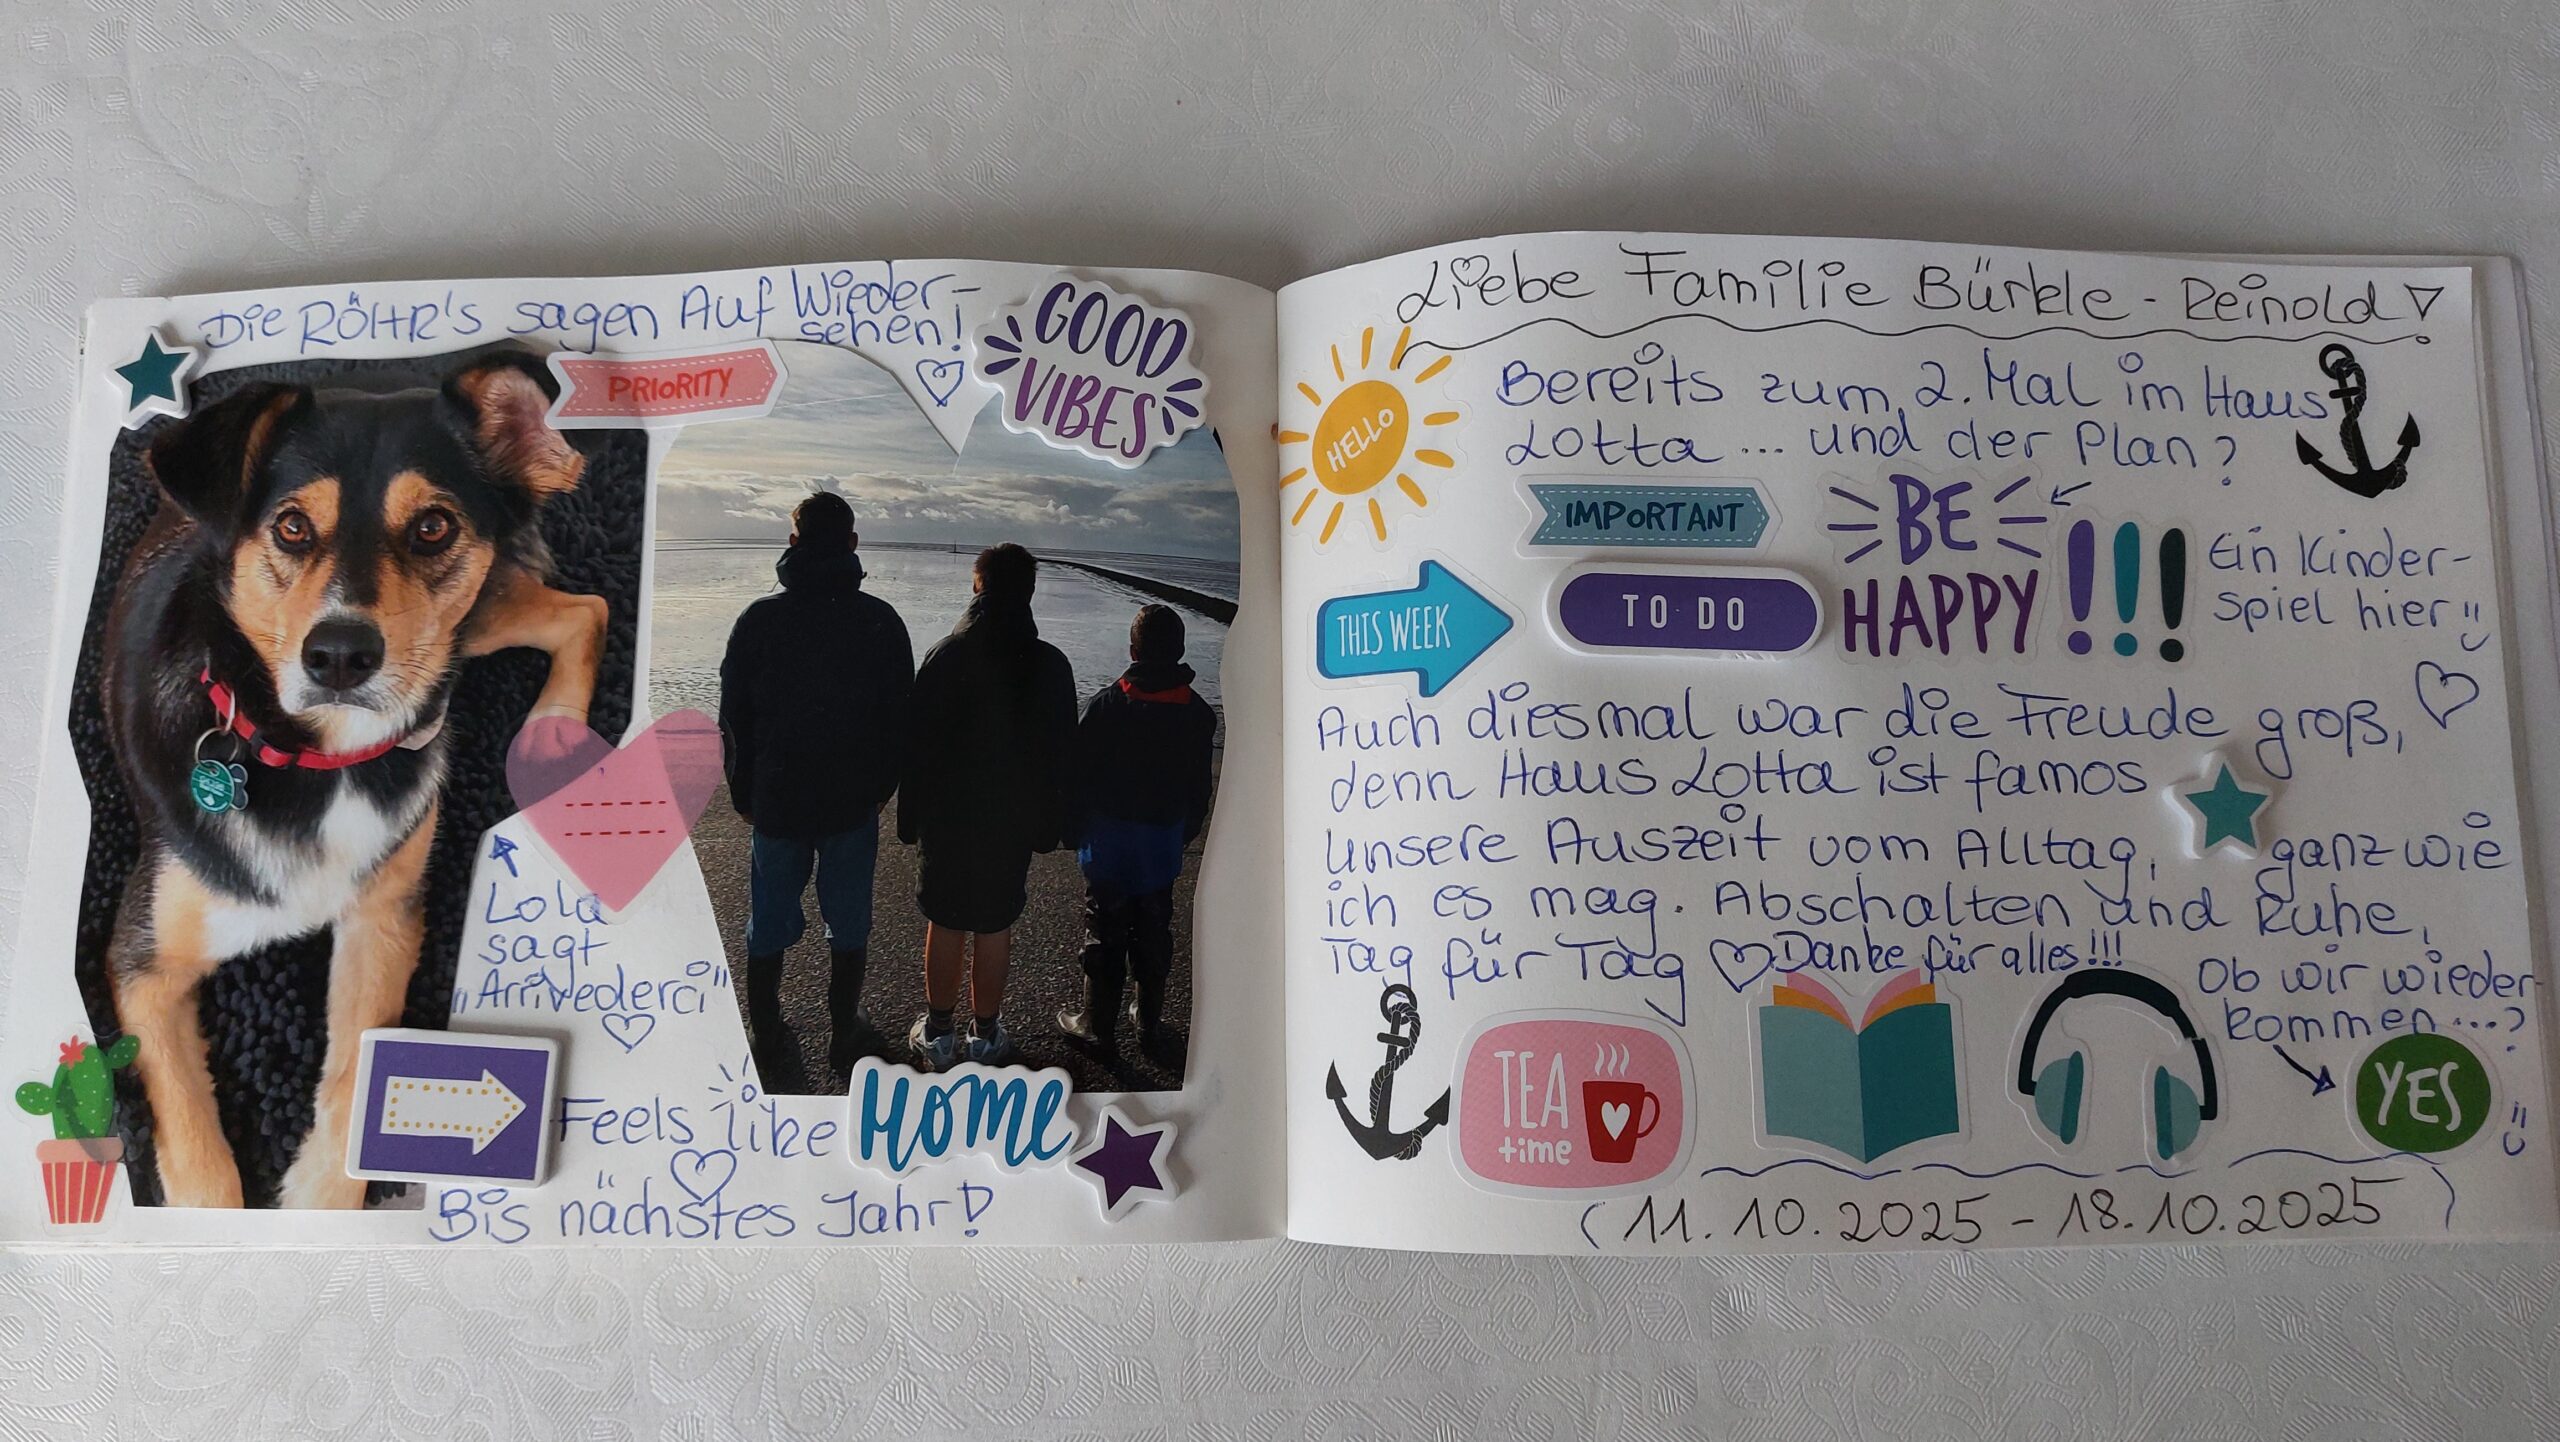 Die RÖHR's sagen Auf Wieder-
sehen!
GOOD
VIBES
PRIORITY
Lola
sagt
"Arrivederci"
Feels like HOME
Bis nächstes Jahr!
Liebe Familie Bürkle - Reinold!
HELLO
Bereits zum 2. Mal im Haus
Lotta ... und der Plan?
THIS WEEK
IMPORTANT
TO DO
BE
HAPPY
!!!
Ein Kinder-
spiel hier
Auch diesmal war die Freude groß,
denn Haus Lotta ist famos
Unsere Auszeit vom Alltag, ganz wie
ich es mag. Abschalten und Ruhe,
Tag für Tag Danke für alles!!!
Ob wir wieder-
kommen...?
YES
TEA
time
(11.10.2025 - 18.10.2025)